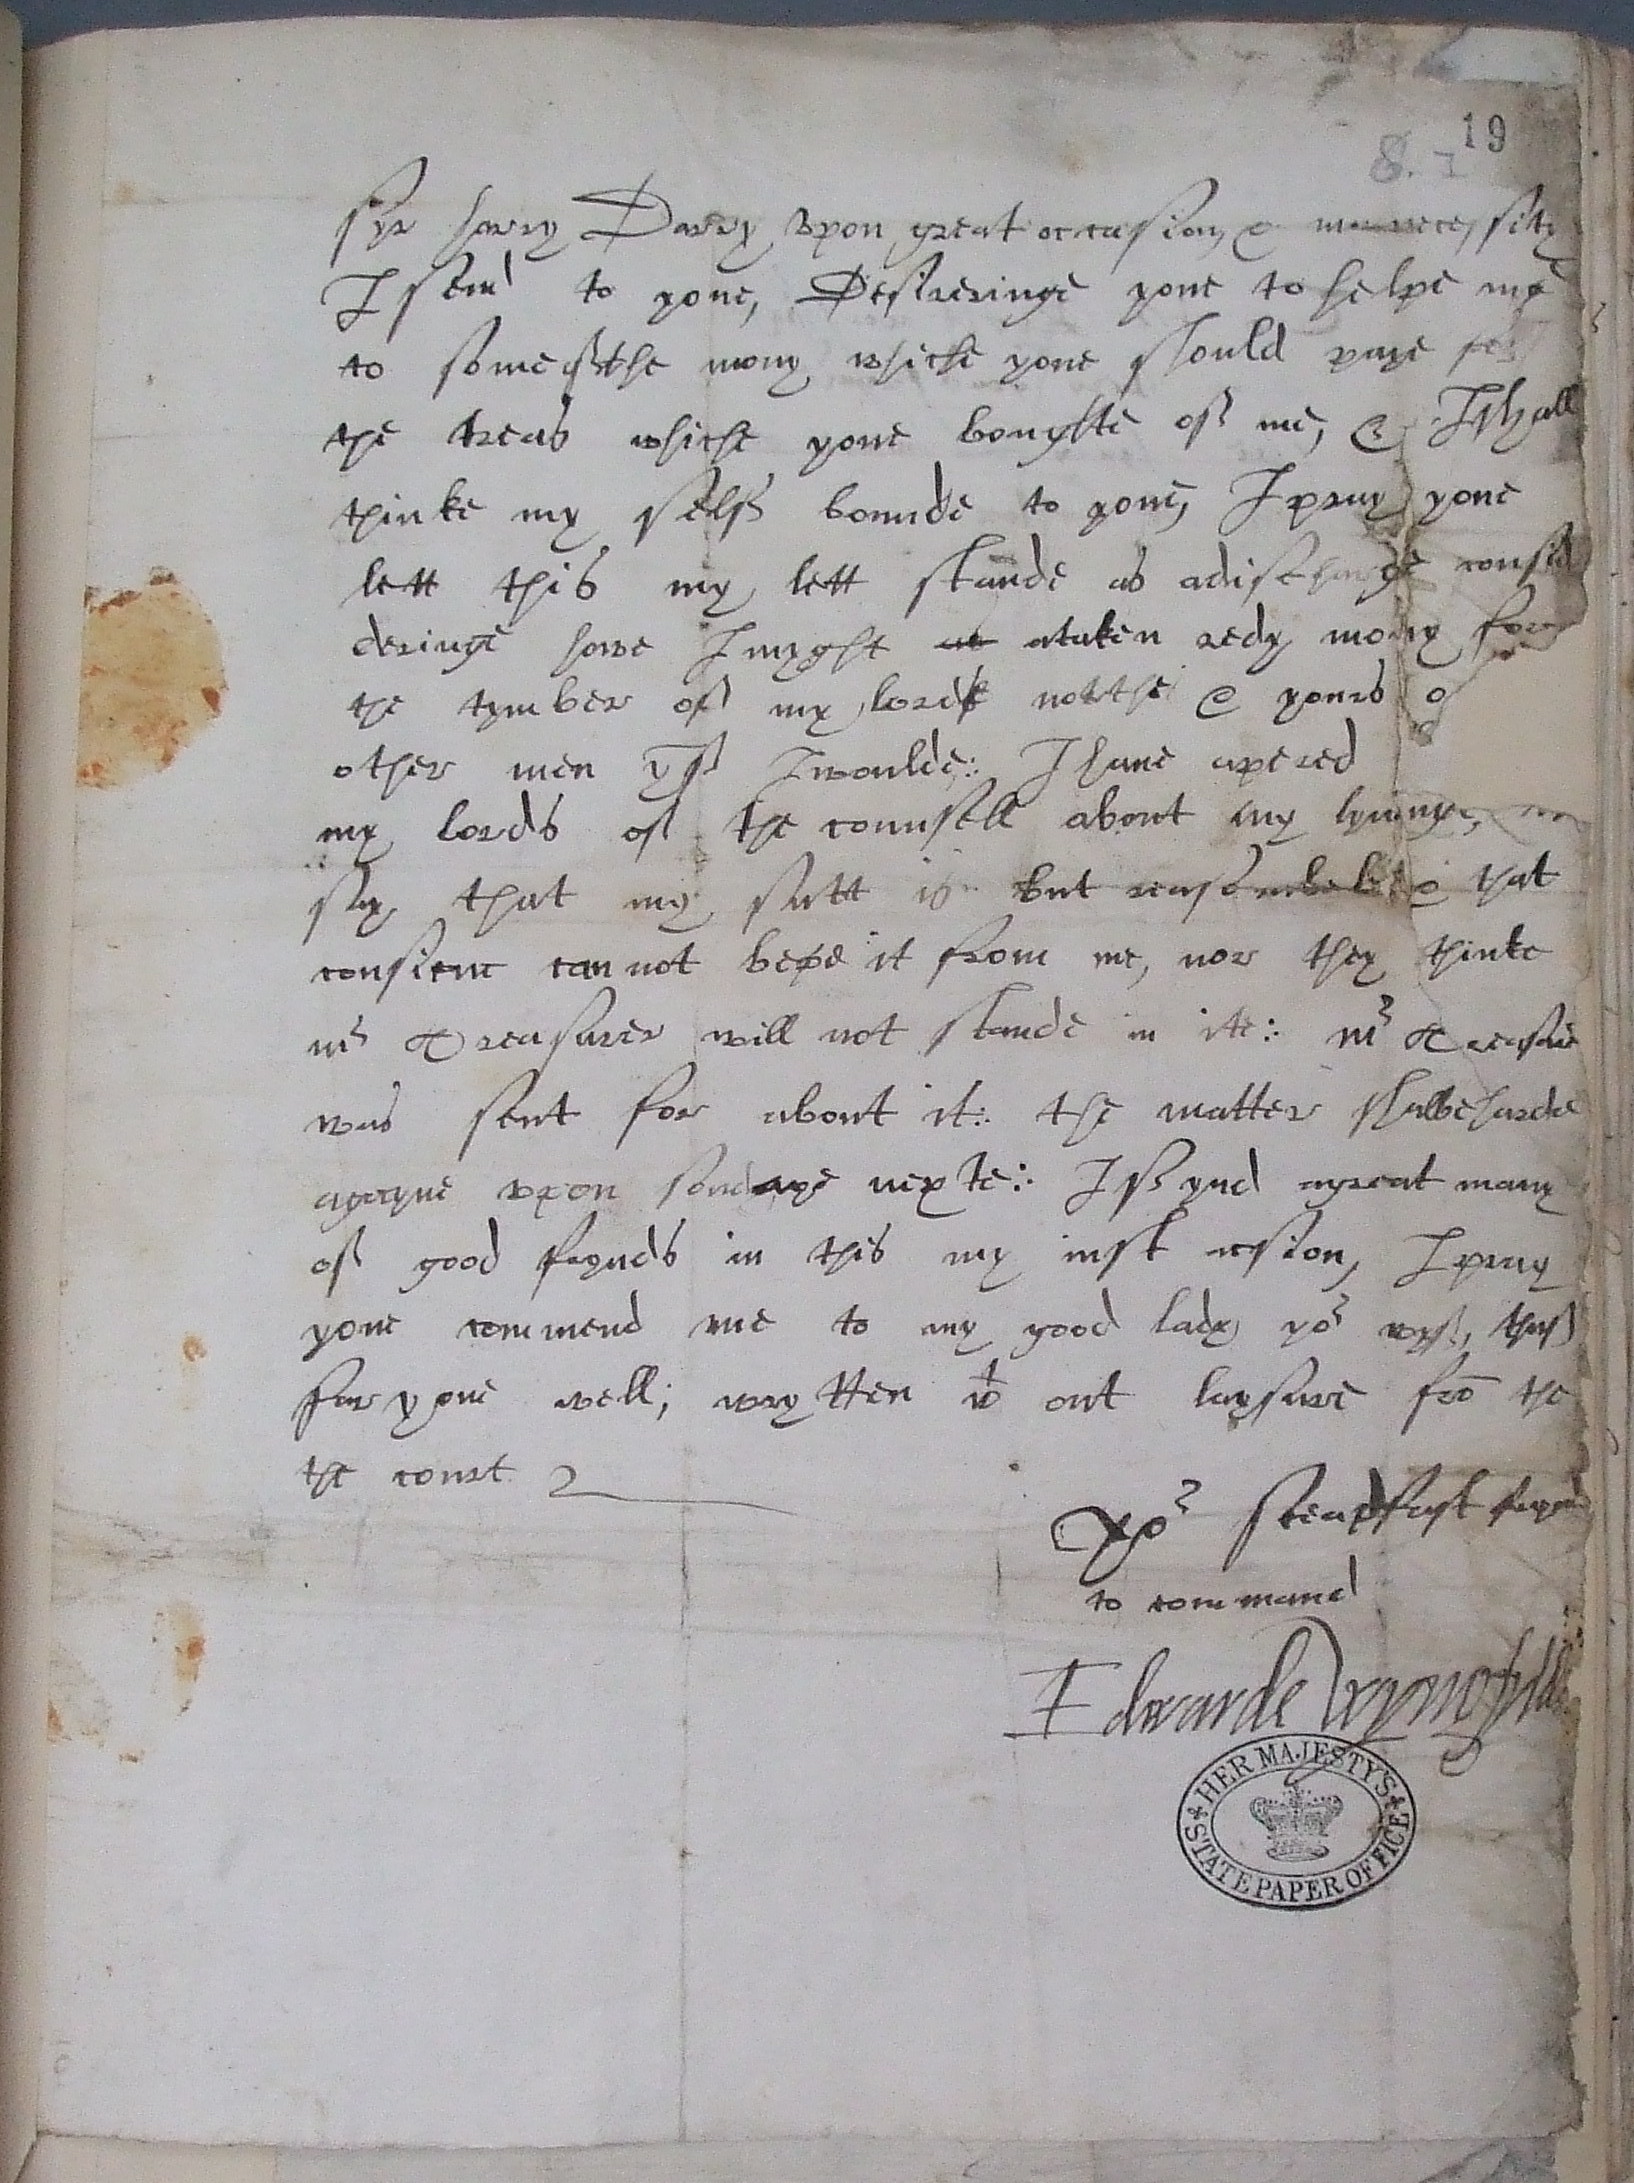 19
8. 7
Syr harry Darry vpon great occasion & necessity
I send to youe, Desireringe youe to helpe me
to some of the mony whiche youe should paye for
the treas whiche youe boughte off me, & I shall
thinke my selff bounde to youe, I pray youe
lett this my lett stande as a discharge consid
deringe howe I myght a taken redy mony for
the tymber off my lord northe & yours
other men yff I woulde:. I haue apered
my lords off the counsell about my lyvinge,
say that my sutt is but reasonable & that
consienc can not kepe it from me, nor they thinke
mr Treasurer will not stande in itt:. mr Treasure
was sent for about it:. the matter shalbe harde
agayne vpon sondaye nexte:. I ffynd a great many
off good frynds in this my iust asion, I pray
youe commend me to my good lady yor wyff, thus
far youe well; wrytten wt out laysure fro the
the court
Yor steadfast frynd
to command
Edwarde
HER MAJESTY'S
STATE PAPER OFFICE